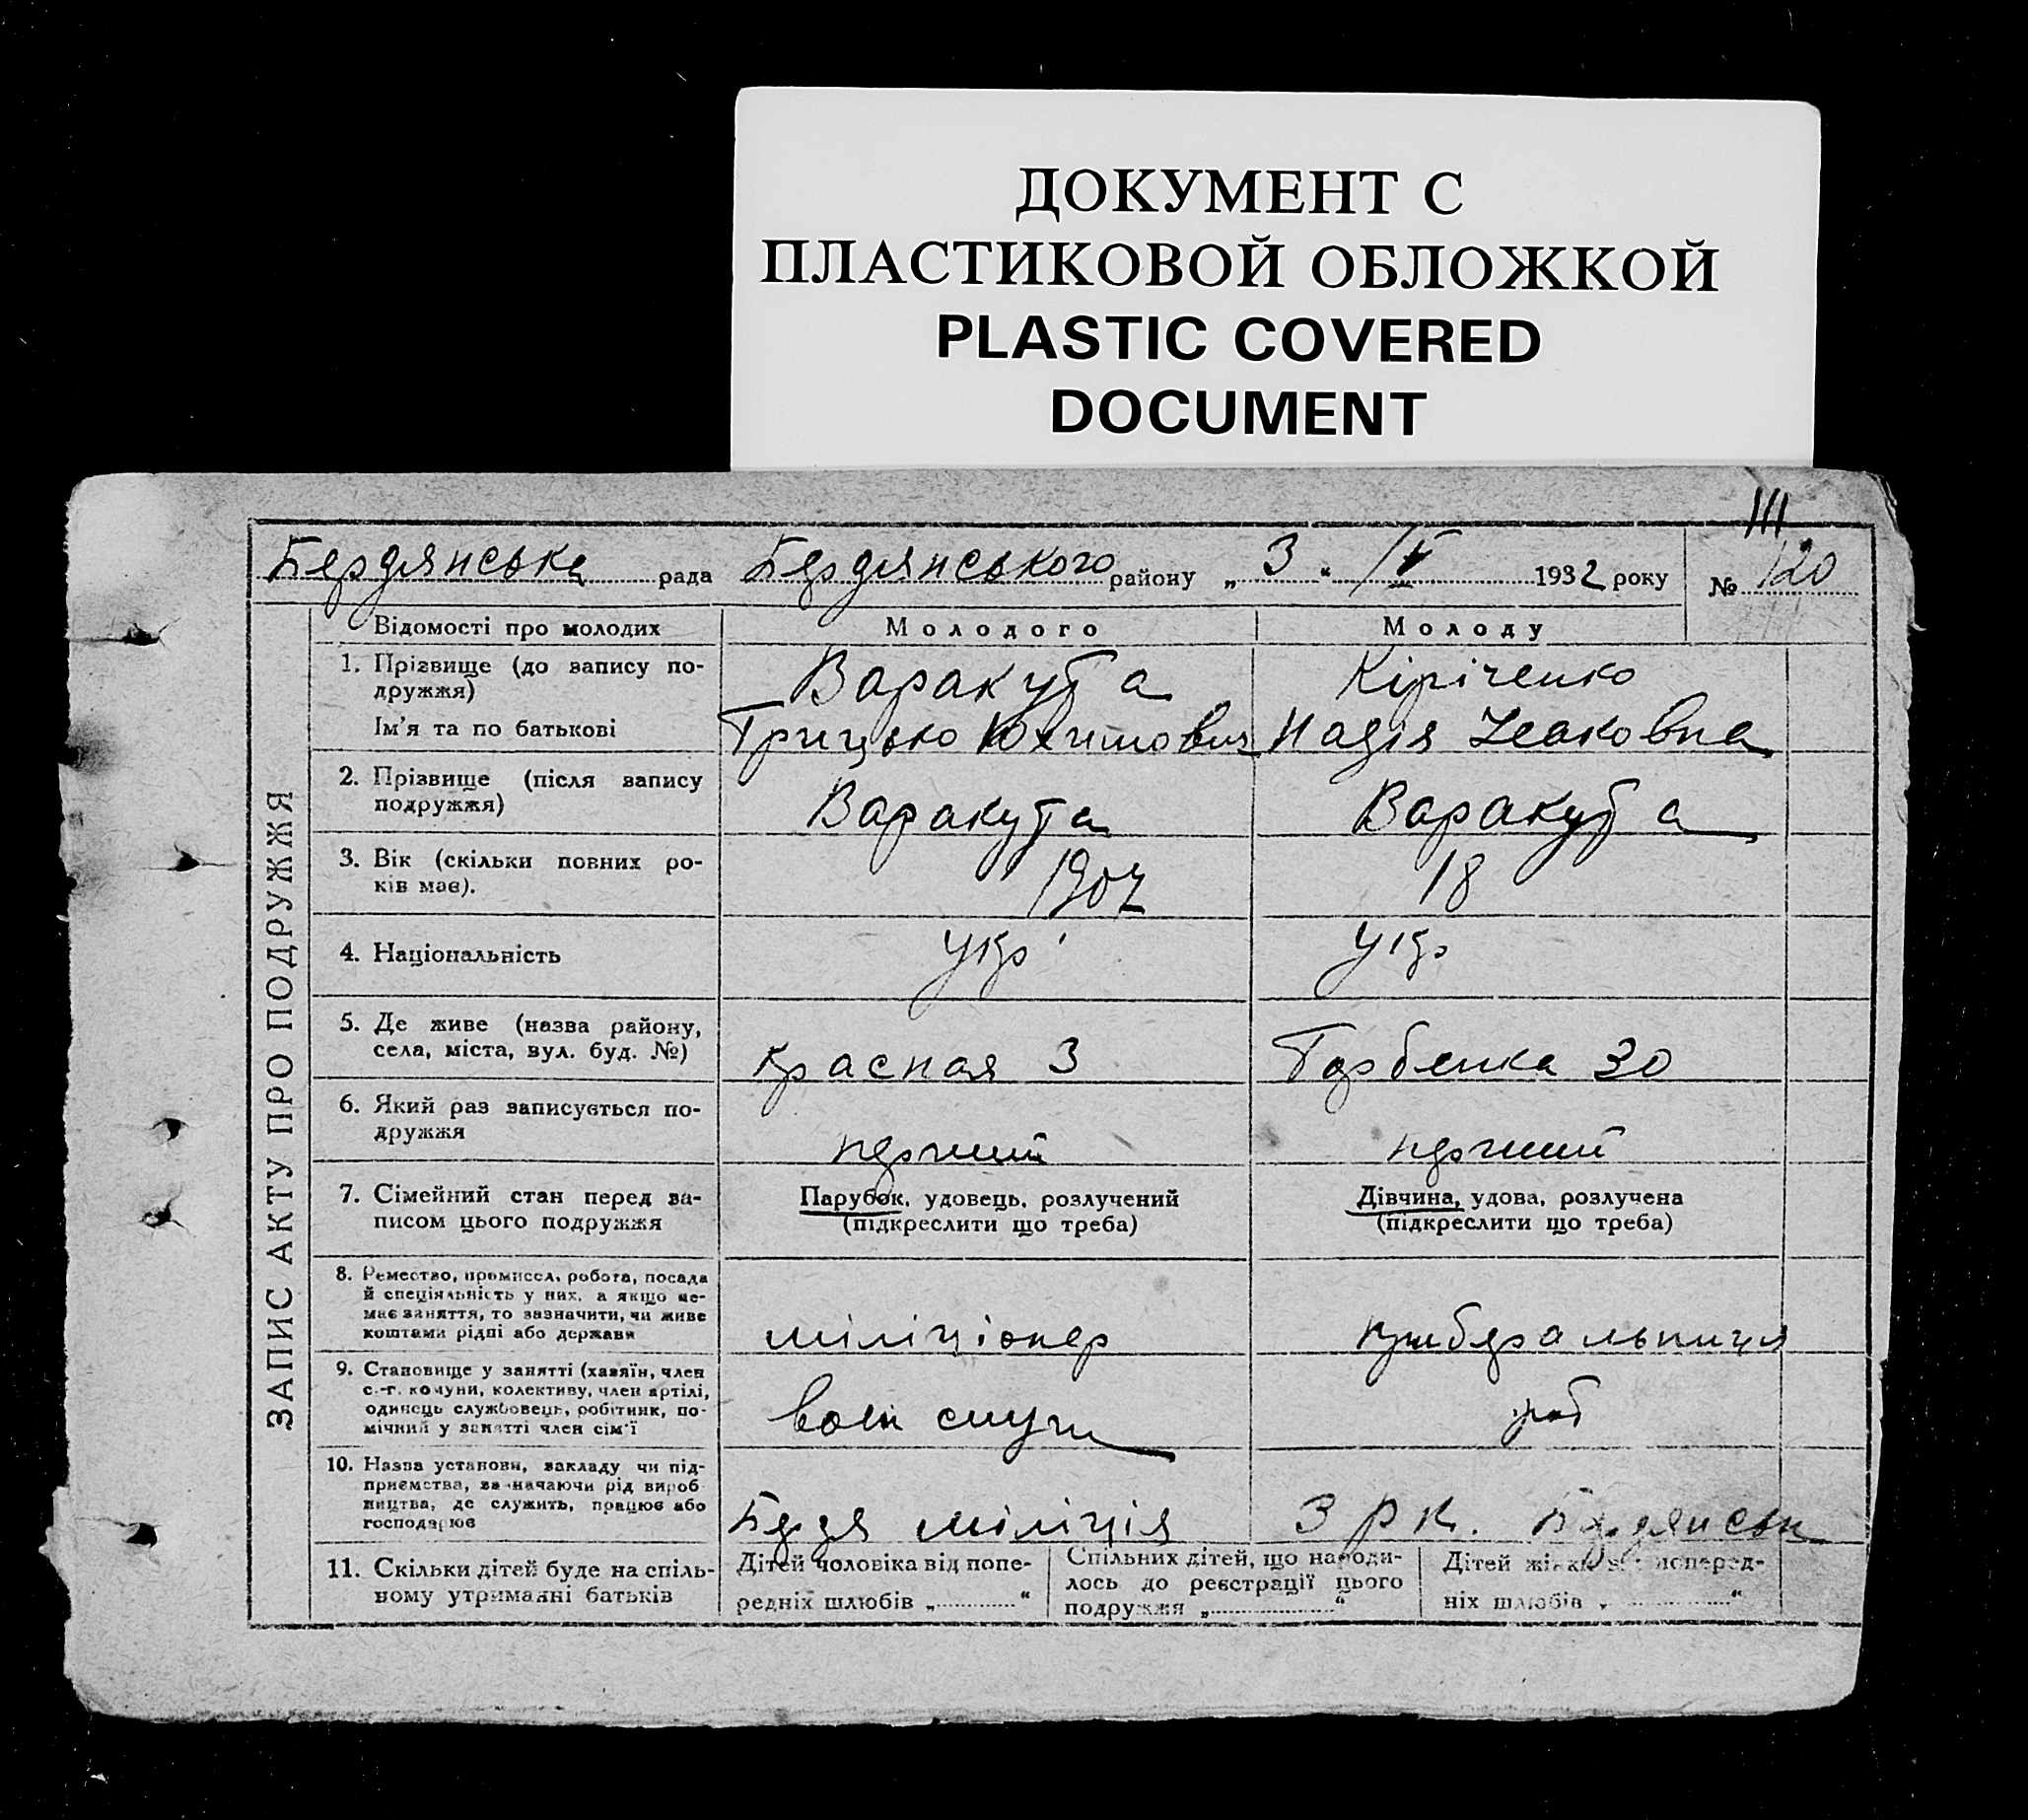 ДОКУМЕНТ С
ПЛАСТИКОВОЙ ОБЛОЖКОЙ
PLASTIC COVERED
DOCUMENT
111
Бердянська рада Бердянського району „ 3 “ IV 1932 року № 120
ЗАПИС АКТУ ПРО ПОДРУЖЖЯ
Відомості про молодих Молодого Молоду
1. Прізвище (до запису по-
дружжя) Варакута Кіріченко
Ім'я та по батькові Грицько Юхимович Надія Ісаковна
2. Прізвище (після запису
подружжя) Варакута Варакута
3. Вік (скільки повних ро-
ків має). 1907 18
4. Національність укр укр
5. Де живе (назва району,
села, міста, вул. буд. №) Красная 3 Горбенка 30
6. Який раз записується по-
дружжя перший перший
7. Сімейний стан перед за-
писом цього подружжя
Парубок, удовець, розлучений
(підкреслити що треба)
Дівчина, удова, розлучена
(підкреслити що треба)
8. Ремество, промисел, робота, посада
й спеціяльність у них, а якщо не-
має заняття, то зазначити, чи живе
коштами рідні або держави міліціонер прибіральниця
9. Становище у занятті (хазяїн, член
с.-г. комуни, колективу, член артілі,
одинець службовець, робітник, по-
мічний у занятті член сім'ї роб
10. Назва установи, закладу чи під-
приємства, зазначаючи рід вироб
ництва, де служить, працює або
господарює міліція З Р К. Бердянськ
11. Скільки дітей буде на спіль-
ному утриманні батьків
Дітей чоловіка від попе-
редніх шлюбів „ “
Спільних дітей, що народи-
лось до реєстрації цього
подружжя „ “
Дітей жінки від поперед-
ніх шлюбів „ “